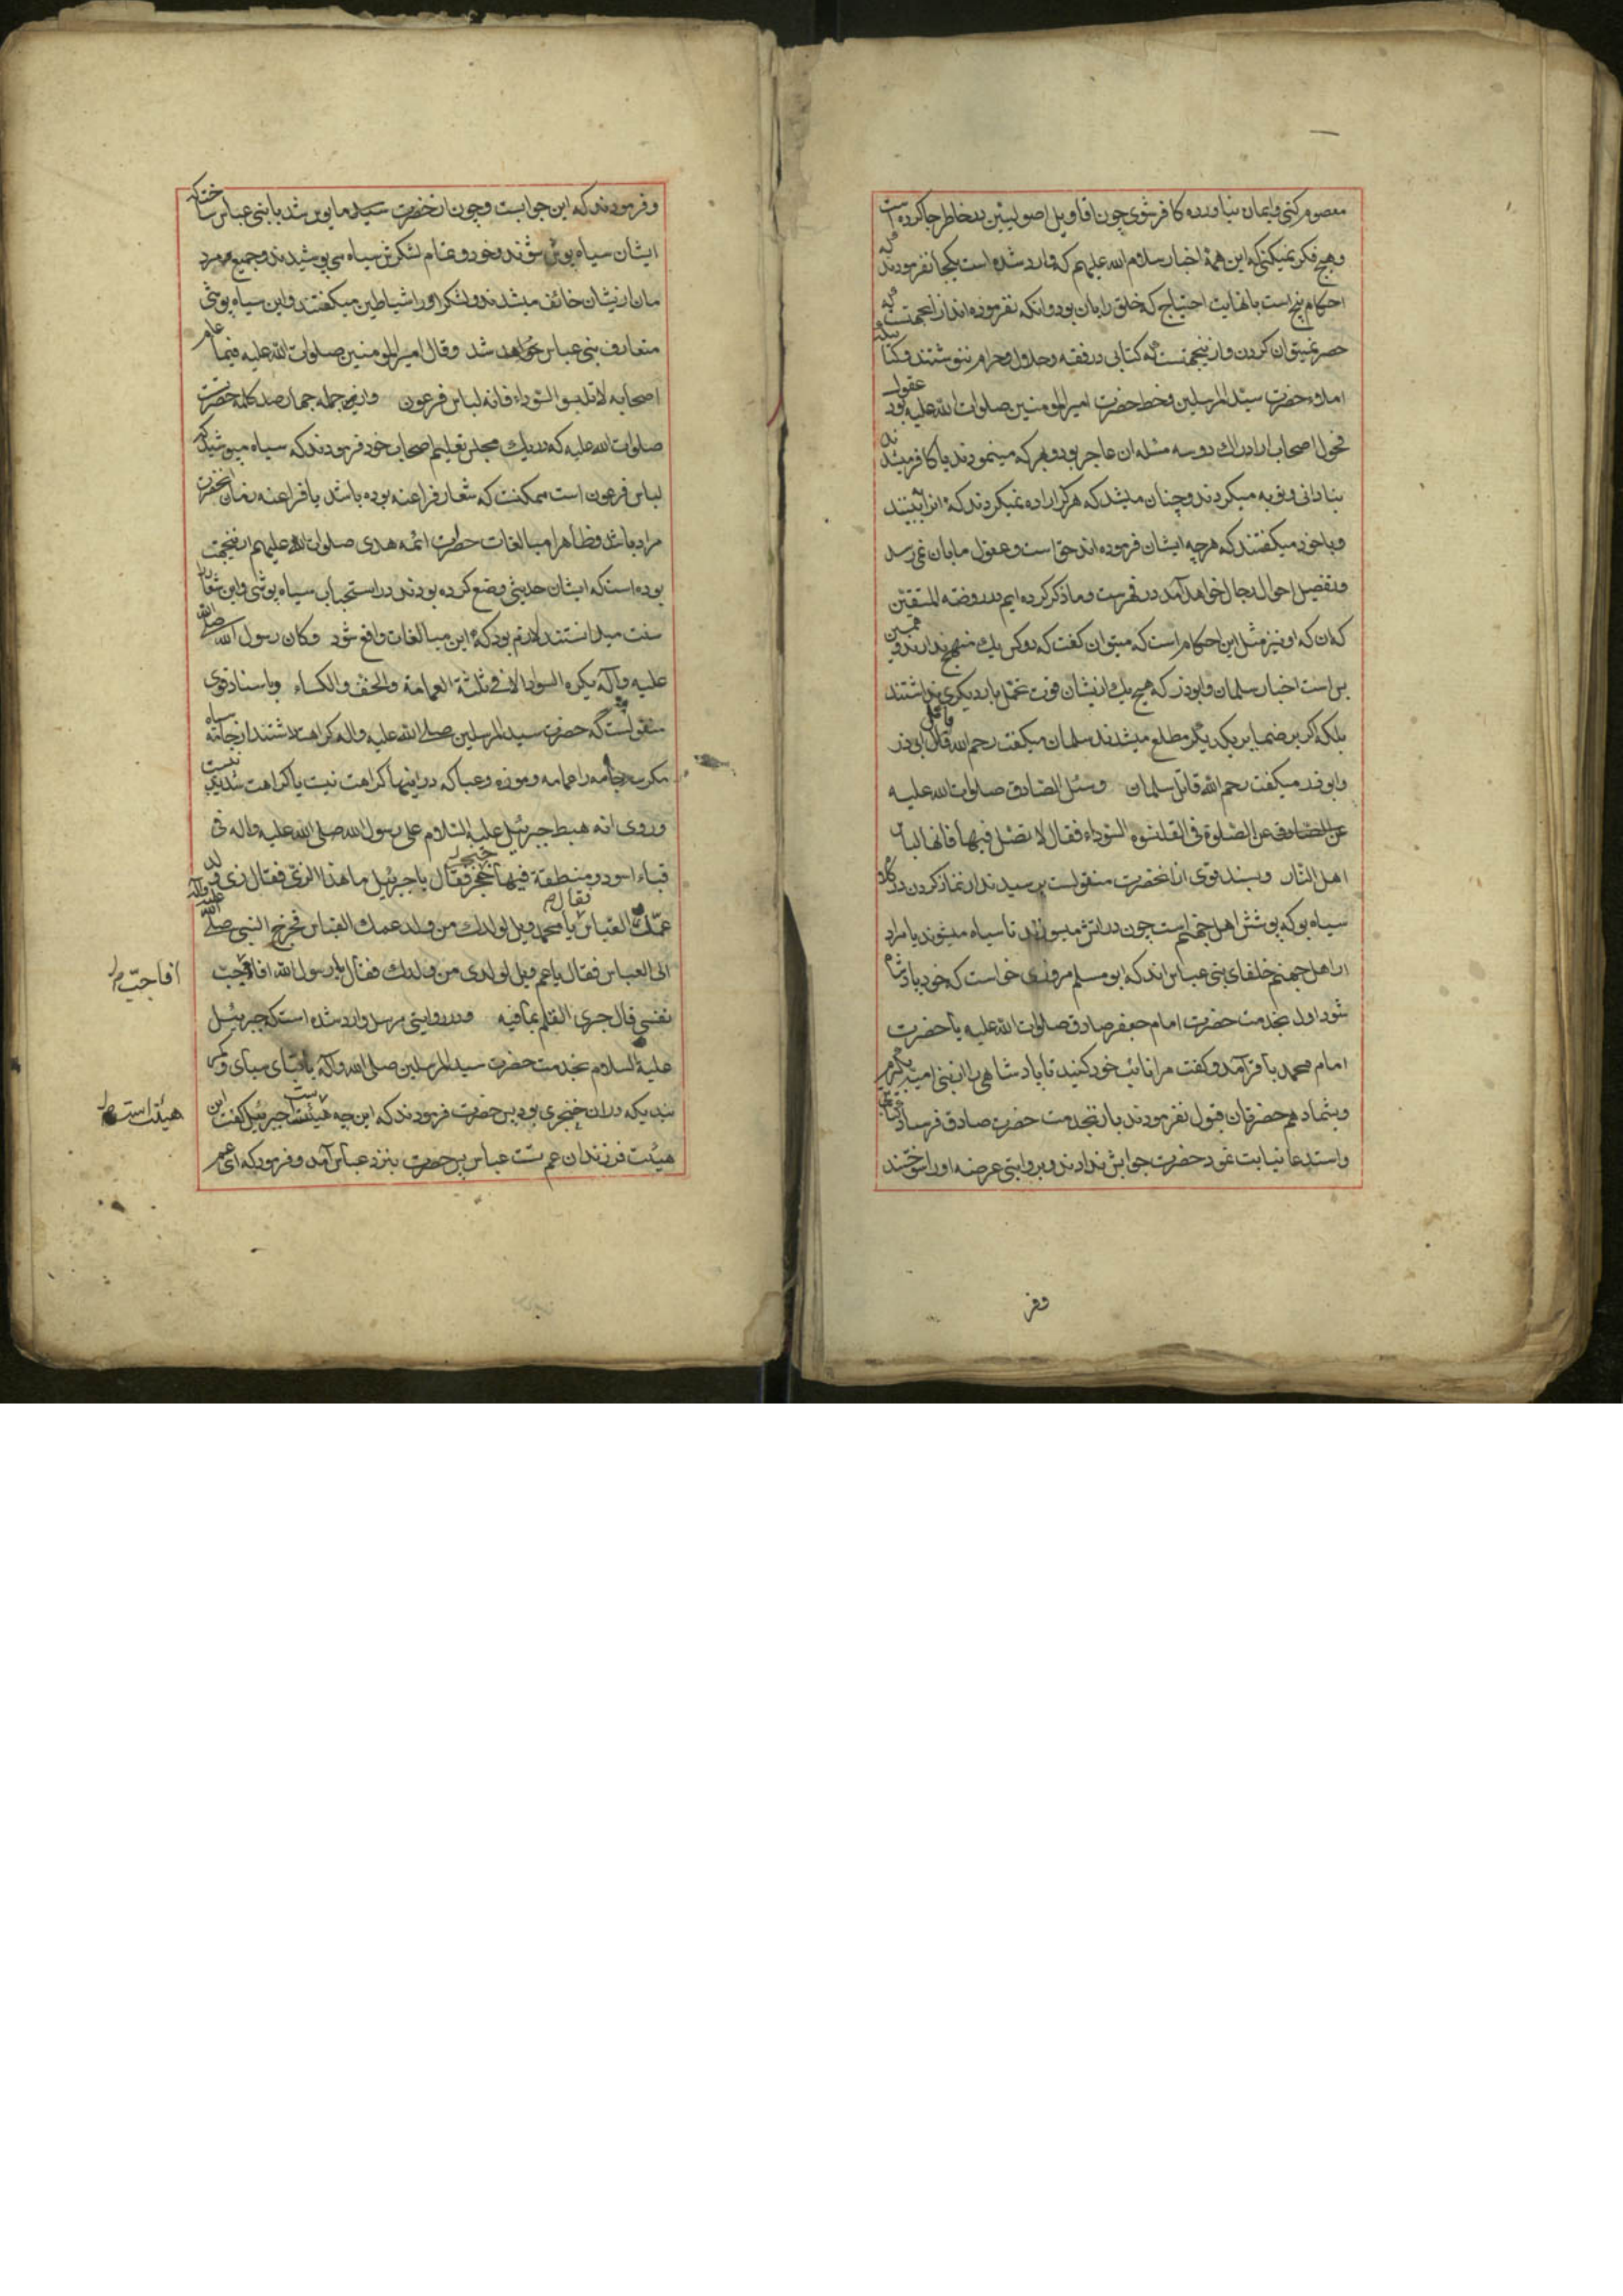 معصوم کنی و ایمان نیاورده کافر شوی چون اقاویل اصولیین در خاطر جا کرده است
و هیچ فکر نمیکنی که این همهٔ اخبار سلام الله علیهم که وارد شده است یکجا نفرمودند که
احکام پنج است با نهایت احتیاج که خلق را بان بود و آنکه نفرموده‌اند از آنجهتست که
حصر نمیتوان کردن و از اینجهتست که کتابی در فقه و حلال و حرام ننوشتند و کتا بیکه
املاء حضرت سیّد المرسلین و خط حضرت امیر المومنین صلوات الله علیه بود عقول
فحول اصحاب از ادراک دو سه مسئله آن عاجز بود و بهر که مینمودند یا کافر میشد ند
بنادانی و توبه میکردند و چنان میشد که هرگز اراده نمیکردند که آنرا ببینند
و با خود میکفتند که هر چه ایشان فرموده‌اند حق است و عقول مابان نمیرسد
و تفصیل احوال رجال خواهد آمد در فهرست و ما ذکر کرده ایم در روضه المتقین
که او نیز مثل این احکام است که میتوان کفت که دو کس یک منهج ندارند و همین
بس است اخبار سلمان و ابوذر که هیچ یک از یشان قوت تحمّل بار دیکری نداشتند
بلکه اکر بر ضمایر یکدیگر مطلع میشدند سلمان میکفت رحم الله قاتل ابی ذر
و ابو ذر میکفت رحم الله قاتل سلمان و سئل الصّادق صلوات الله علیه
عن الصّلوة فی القلنسوه السّوداء فقال لا تصلّ فیها فانها لباس
اهل النّار و بسند قوی از آنحضرت منقولست پرسیدند از نماز کردن در کلاه
سیاه بو که پوشش اهل جهنّم است چون در اتش میسوزند تا سیاه میشوند یا مراد
از اهل جهنم خلفای بنی عباس اند که ابو مسلم مروزی خواست که خود پادشاه
شود اول بخدمت حضرت امام جعفر صادق صلوات الله علیه یا حضرت
امام محمد باقر آمد و کفت مرا نائب خود کنید تا پادشاهی را از بنی امیه بگیرم
و بشما دهم حضرتان قبول نفرمودند باز بخدمت حضرت صادق فرستاد
و استدعا نیابت نمود حضرت جوابش ندادند و بروایتی عرضه او را سوختند
وفر
و فرمودند که این جوابست و چون از حضرت سید مایوس شد با بنی عباس ساخت که
ایشان سیاه پوش شوند و خود و تمام لشکرش سیاه می پوشیدند و جمیع مردم
مان از یشان خائف میشدند و لشکر او را شیاطین میکفتند و این سیاه پوشی
متعارف بنی عباس خواهد شد و قال امیر المومنین صلوات الله علیه فیما علم
اصحابه لا تلبسو السّوداء فانه لباس فرعون و از جمله چهار صد کلمه حضرت
صلوات الله علیه که در یک مجلس تعلیم اصحاب خود فرمودند که سیاه مپوشید که
لباس فرعون است ممکنست که شعار فراعنه بوده باشد یا فراعنه زمان آنحضرت
مراد باشد و ظاهرا مبالغات حضرات ائمه هدی صلوات الله علیهم از اینجهت
بوده است که ایشان حدیثی وضع کرده بودند در استحباب سیاه پوشی و این شعار را
سنت میدانستند لازم بود که این مبالغات واقع شود و کان رسول الله صلی الله
علیه و آله یکره السواد الا فی ثلثة العمامة و الخف و الکساء و باسناد قوی
منقولست که حضرت سید المرسلین صلی الله علیه و اله کراهت داشتند از جامه سیاه
مکر سه جامه را عمامه و موزه و عبا که در اینها کراهت نیست یا کراهت شدید نیست
و روی انه هبط جبرئیل علیه السّلام علی رسول الله صلی الله علیه و اله فی
قباء اسود و منطقة فیها خنجر فقال یا جبرئیل ما هذا الزیّ فقال زی ولد
عمّک العباس یا محمد ویل لولدک من ولد عمک العباس فخرج النبی صلی الله علیه و آله
الی العباس فقال یا عم ویل لولدی من ولدک فقال یا رسول الله افاجب
نفسی قال جری القلم بما فیه و در روایتی مرسل وارد شده است که جبرئیل
علیه السلام بخدمت حضرت سید المرسلین صلی الله و اله با قبای سیاه و کمر
بندیکه در ان خنجری بود پس حضرت فرمودند که این چه هیئت است جبرئیل کفت این
هیئت فرزندان عم تست عباس پس حضرت بنزد عباس آمد و فرمود که ای عم
افاجبّ
هیئت است